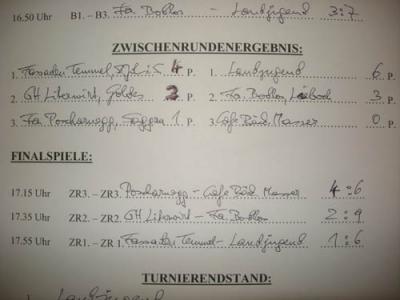 16.50 Uhr B1. – B3. Fa. Bodlos - Landjugend 3:7
ZWISCHENRUNDENERGEBNIS:
1. Fassaden Temmel, 4 P. 1. Landjugend 6 P.
2. GH Likawirt, Goldes 2 P. 2. Fa. Bodlos, 3 P.
3. Fa. Poscharnegg, 1 P. 3. Cafe Bäd. Masser 0 P.
FINALSPIELE:
17.15 Uhr ZR3. – ZR3. Poscharnegg - Cafe Bäd. Masser 4:6
17.35 Uhr ZR2. – ZR2. GH Likawirt - Fa. Bodlos 2:9
17.55 Uhr ZR1. – ZR 1. Fassaden Temmel - Landjugend 1:6
TURNIERENDSTAND:
1. Landjugend